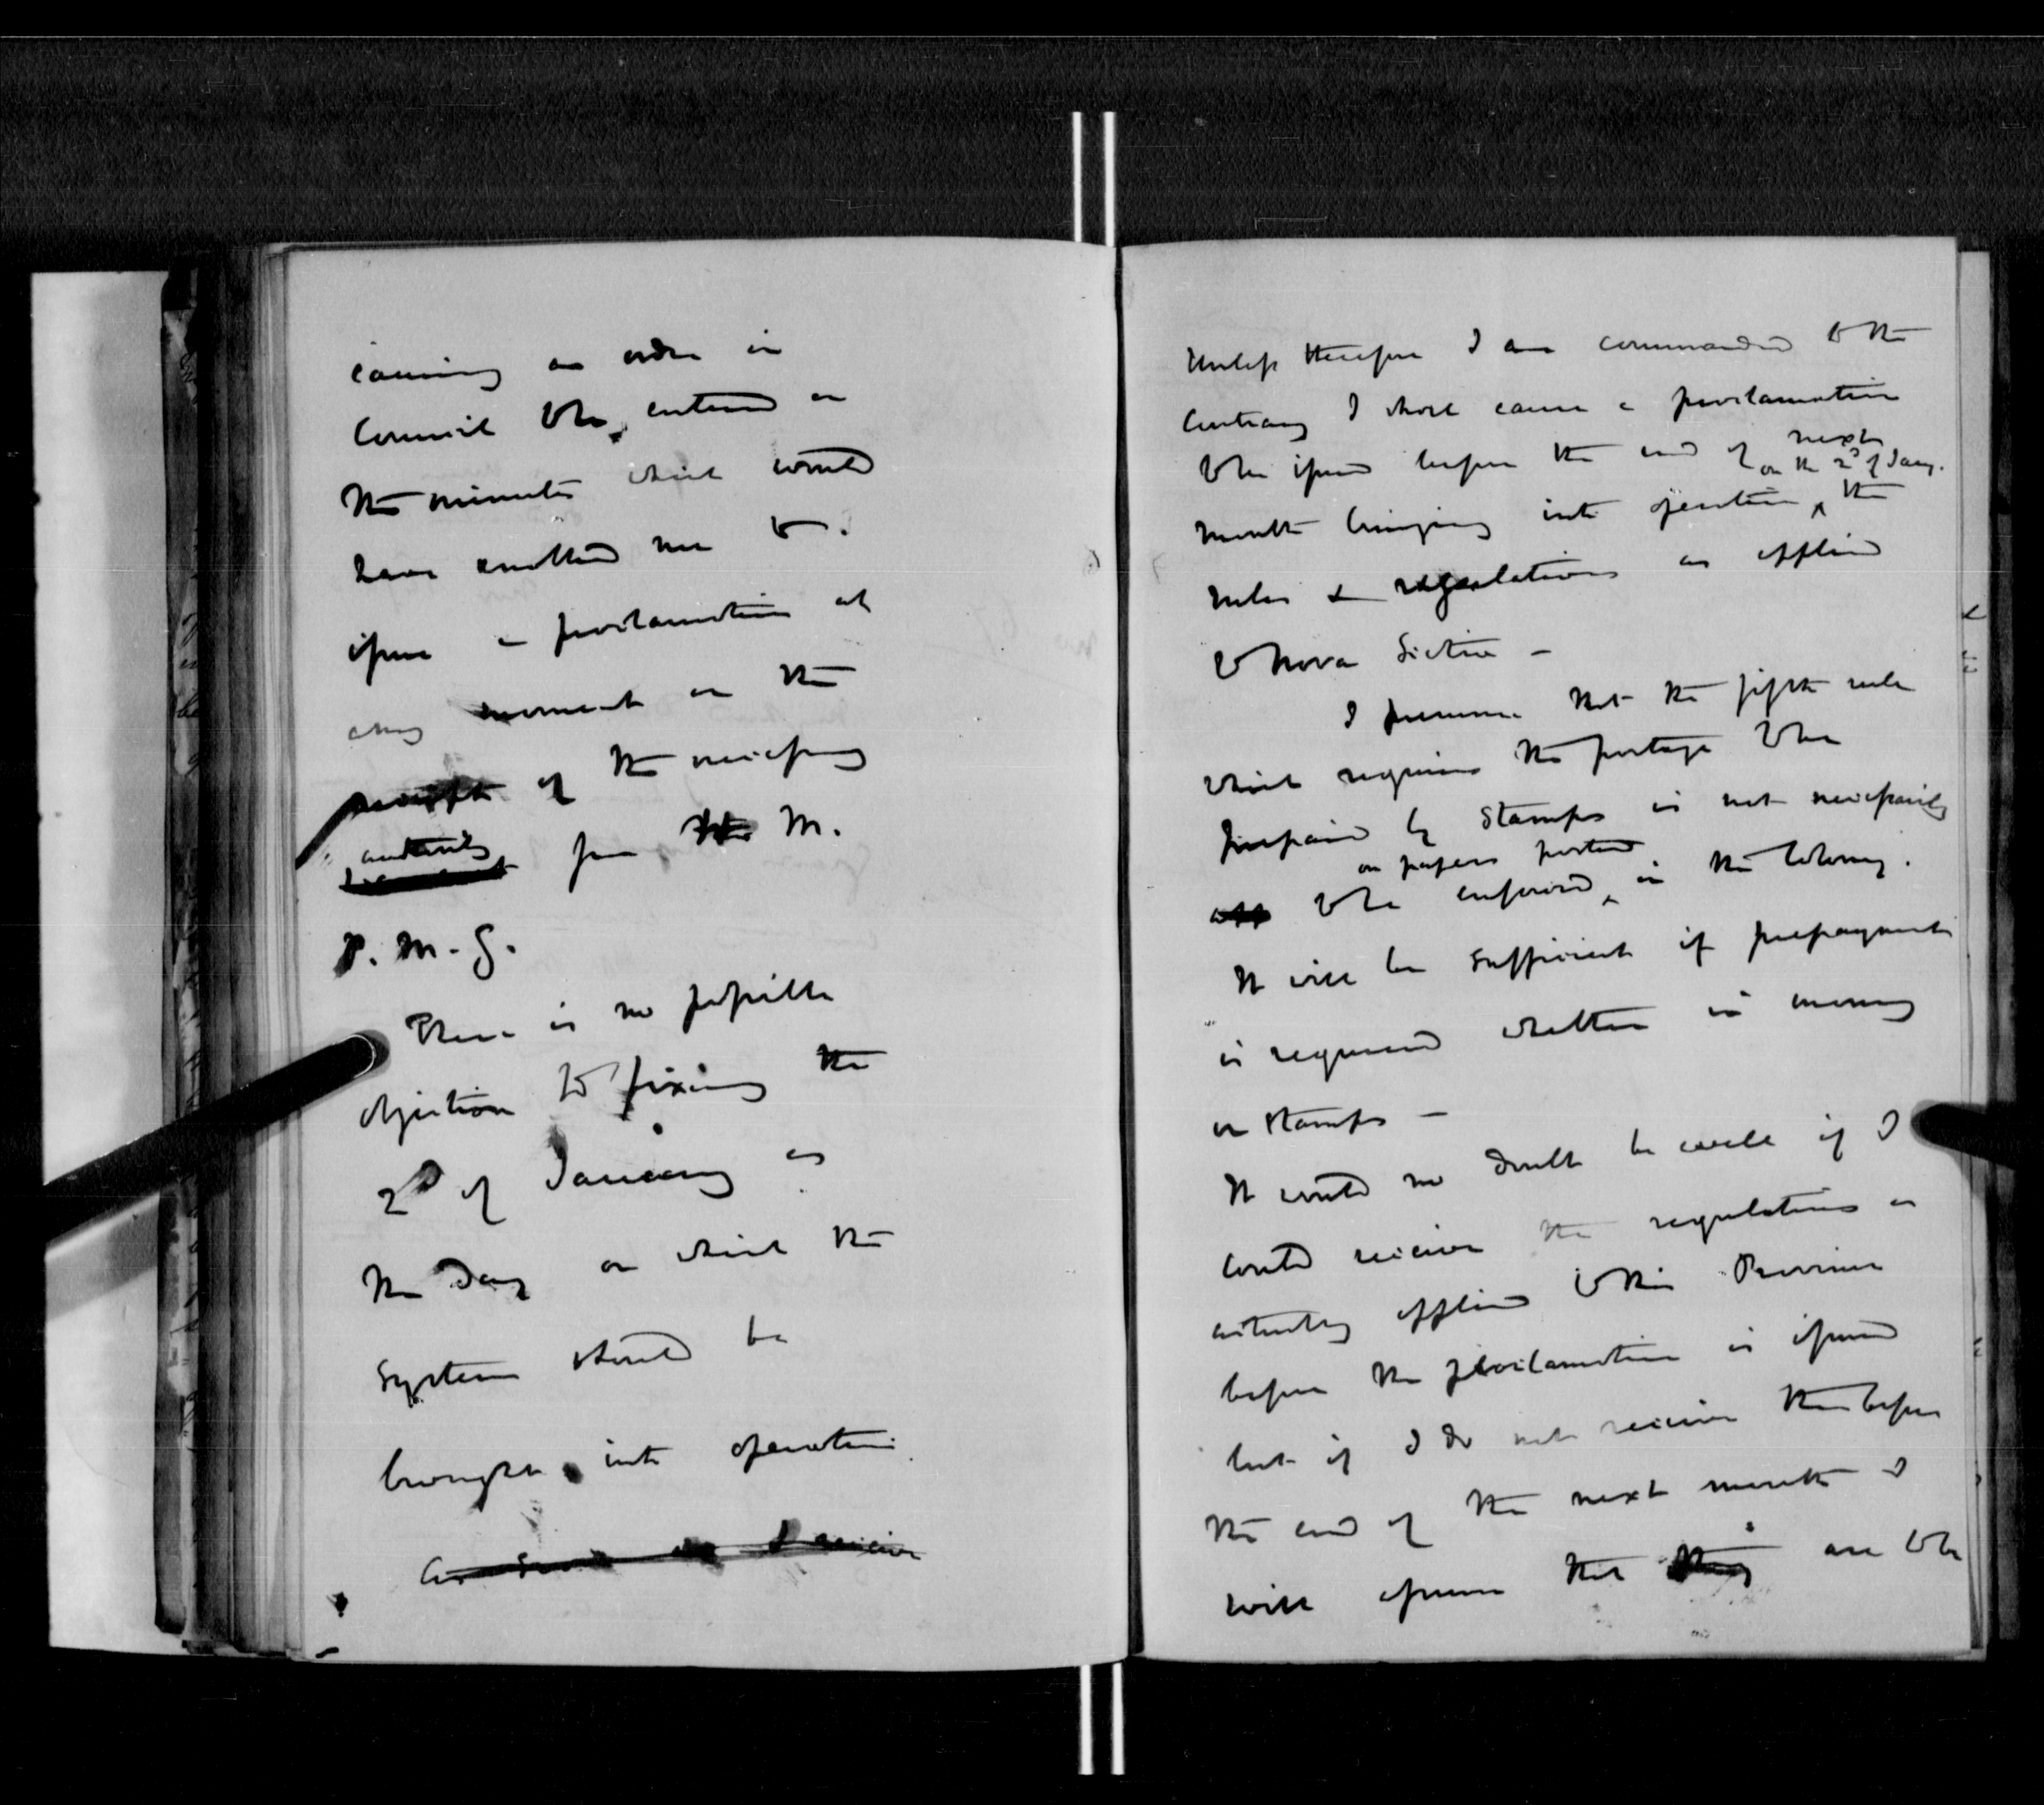 causing an order in
Council to be entered on
the minutes which would
have enabled me to
issue a proclamation at
any moment on the
receipt of the necessary
authority from the M.
P. M. G.
There is no possible
objection to fixing the
2d of January as
the day on which the
system should be
brought into operation.
As soon as I receive
Unless therefore I am commanded to the
contrary I shall cause a proclamation
to be issued before the end of next
on the 2d of Jany.
month bringing into operation the
rules & regulations as applied
to Nova Scotia –
I presume that the fifth rule
which requires the postage to be
prepaid by stamps is not necessarily
on papers posted
to be enforced in the Colony.
It will be sufficient if prepayment
is required whether in money
or stamps –
It would no doubt be well if I
could receive the regulations as
actually applied to this Province
before the proclamation is issued
but if I do not receive them before
the end of the next month I
will assume that they are to be